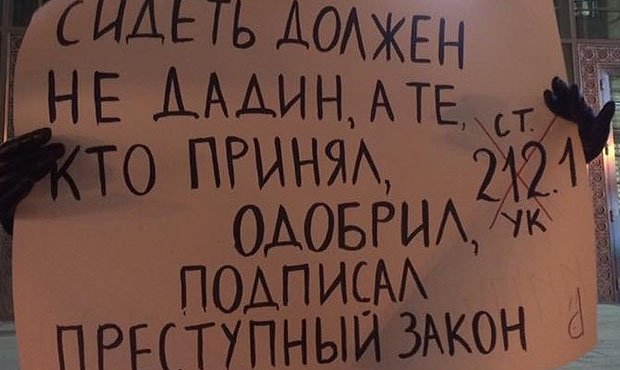 СИДЕТЬ ДОЛЖЕН
НЕ ДАДИН, А ТЕ,
КТО ПРИНЯЛ,
ОДОБРИЛ,
ПОДПИСАЛ
ПРЕСТУПНЫЙ ЗАКОН
СТ.
212.1
УК